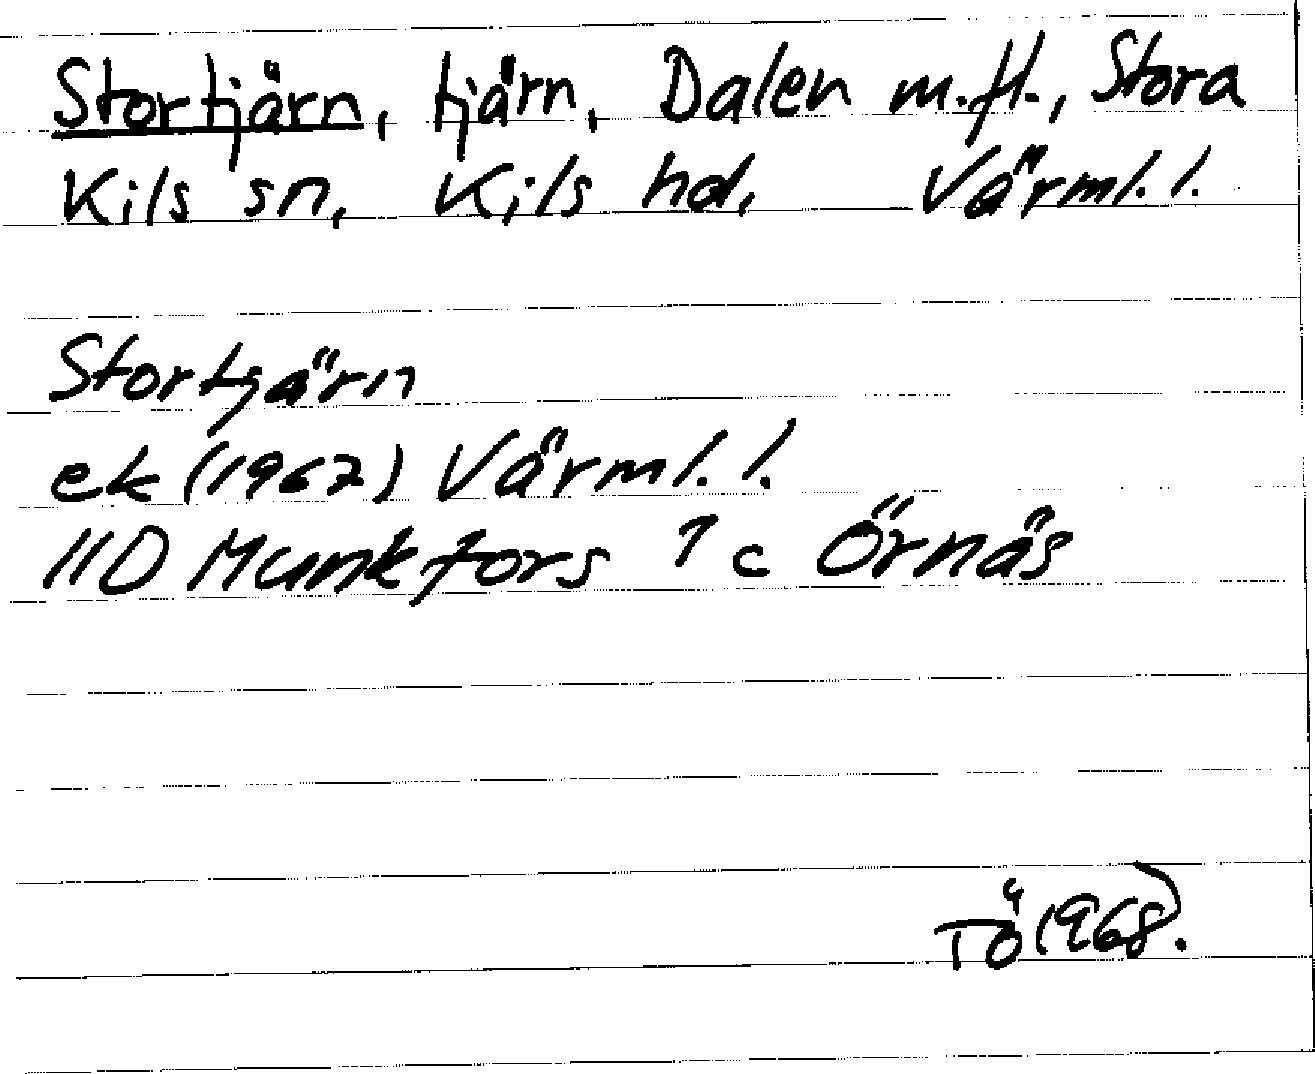 Stortjärn, tjärn, Dalen m.fl., Stora
Kils sn, Kils hd, Värml. l.
Stortjärn
ek (1967) Värml. l.
11D Munkfors 1 c Örnäs
TÖ (1968).